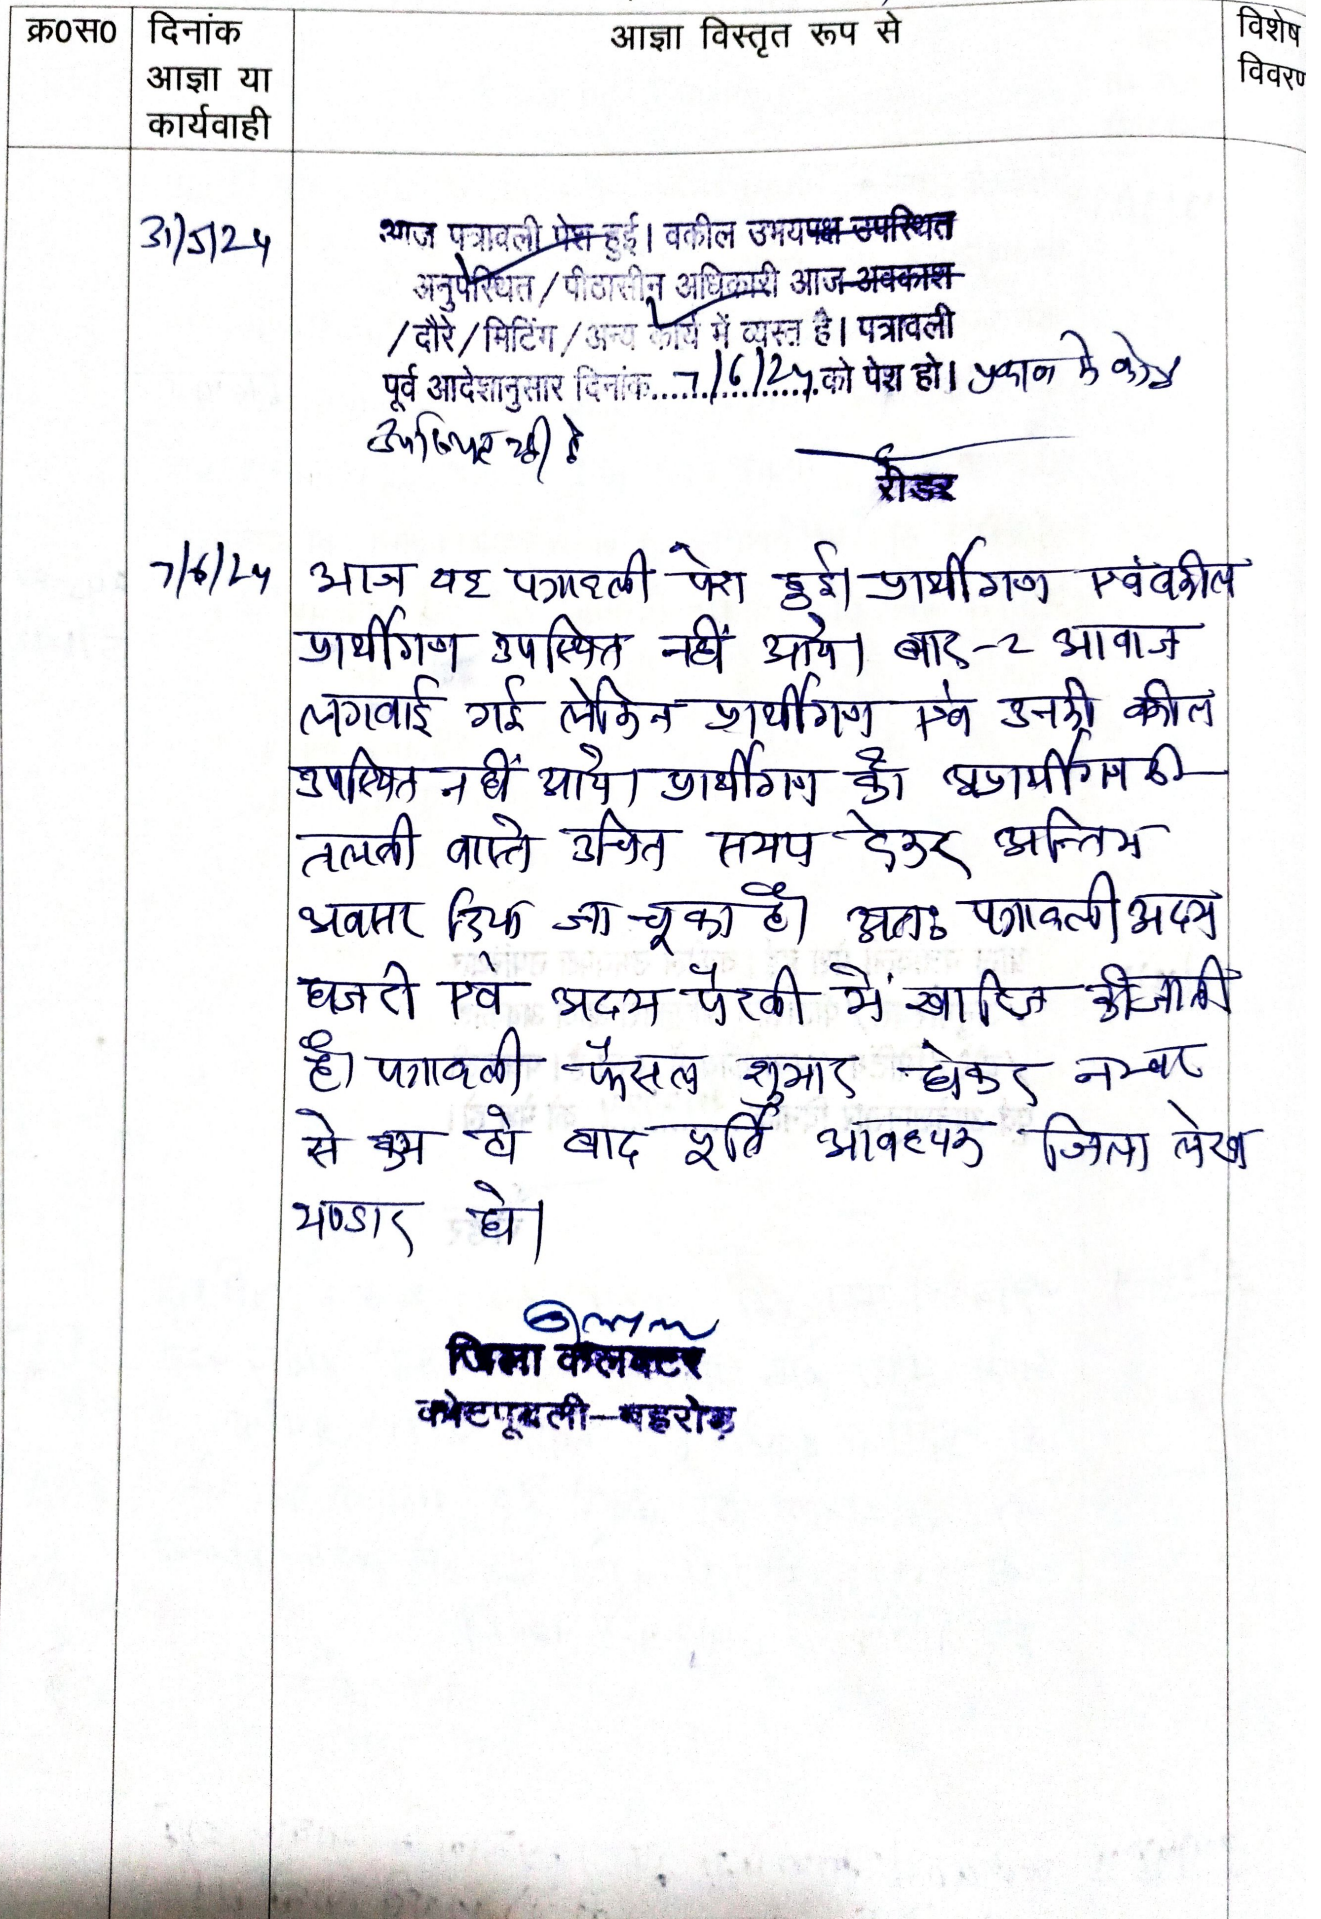 क्र0स0 दिनांक आज्ञा या कार्यवाही आज्ञा विस्तृत रूप से विशेष विवरण
31/5/24 आज पत्रावली पेश हुई। वकील उभयपक्ष उपस्थित
अनुपस्थित/पीठासीन अधिकारी आज अवकाश
/दौरे/मिटिंग/अन्य कार्य में व्यस्त है। पत्रावली
पूर्व आदेशानुसार दिनांक....7/6/24.को पेश हो।
रीडर
7/6/24 आज यह पत्रावली पेश हुई। प्रार्थीगण एवं वकील
प्रार्थीगण उपस्थित नहीं आये। बार-2 आवाज
लगवाई गई लेकिन प्रार्थीगण एवं उनकी वकील
उपस्थित नहीं आये। प्रार्थीगण को अप्रार्थीगण की
तलबी वास्ते उचित समय देकर अन्तिम
अवसर दिया जा चूका है। अतः पत्रावली अदम
हाजरी एवं अदम पैरवी में खारिज की जाती
है। पत्रावली फैसल शुमार होकर नम्बर
से कम हो बाद पूर्ति आवश्यक जिला लेख
भण्डार हो।
जिला कलक्टर
कोटपूतली-बहरोड़